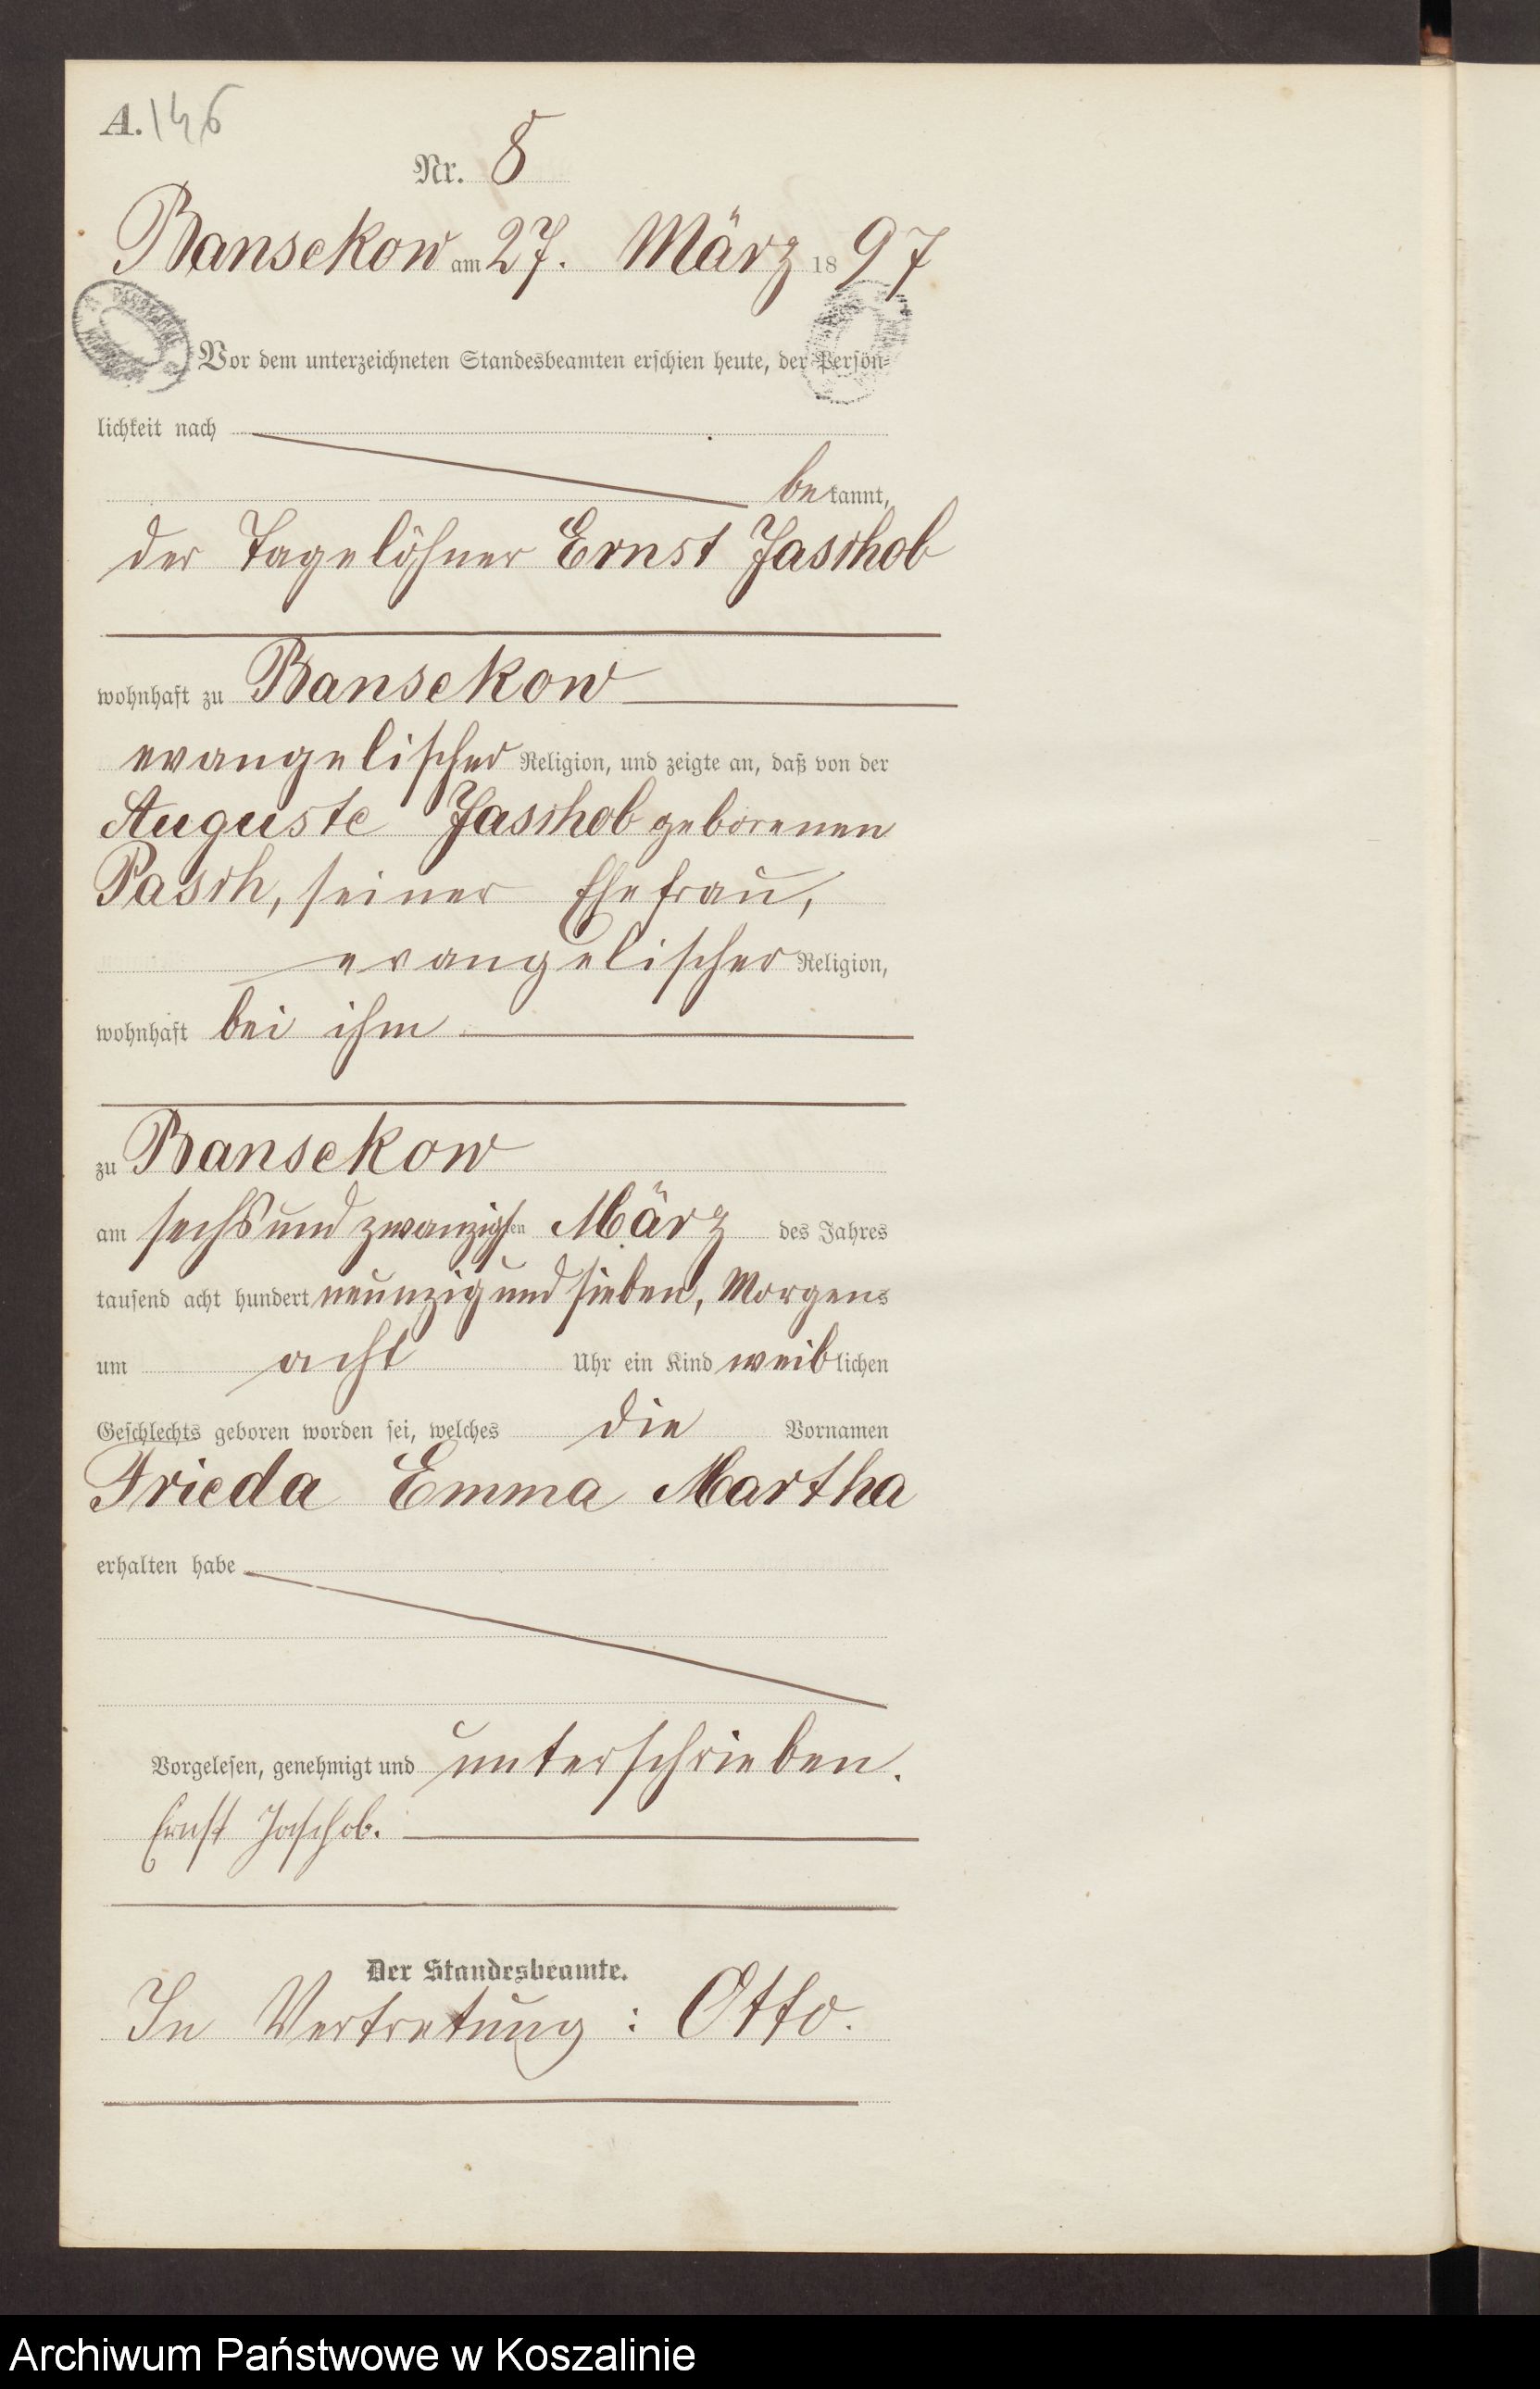 A. 146
Nr. 8
Bansekow am 27. März 1897
Vor dem unterzeichneten Standesbeamten erschien heute, der Persön-
lichkeit nach
bekannt,
der Tagelöhner Ernst Jaschob
wohnhaft zu Bansekow
evangelischer Religion, und zeigte an, daß von der
Auguste Jaschob geborenen
Pasch, seiner Ehefrau,
evangelischer Religion,
wohnhaft bei ihm
zu Bansekow
am sechsundzwanzigsten März des Jahres
tausend acht hundert neunzig und sieben, Morgens
um acht Uhr ein Kind weiblichen
Geschlechts geboren worden sei, welches die Vornamen
Frieda Emma Martha
erhalten habe
Vorgelesen, genehmigt und unterschrieben.
Ernst Jaschob.
Der Standesbeamte.
In Vertretung: Otto.
Archiwum Państwowe w Koszalinie